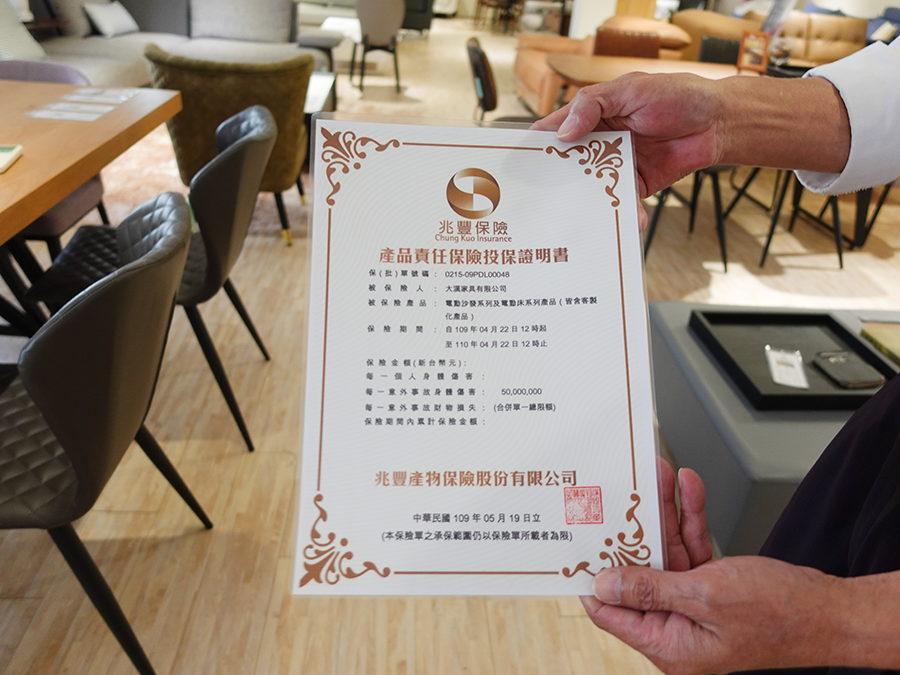 兆豐保險
Chung Kuo Insurance
產品責任保險投保證明書
保(批)單號碼：0215-09PDL00048
被保險人：大漢家具有限公司
被保險產品：電動沙發系列及電動床系列產品（皆含客製
化產品）
保險期間：自109年04月22日12時起
至110年04月22日12時止
保險金額(新台幣元)：
每一個人身體傷害：
每一意外事故身體傷害：50,000,000
每一意外事故財物損失：(合併單一總限額)
保險期間內累計保險金額：
兆豐產物保險股份有限公司
中華民國109年05月19日立
(本保險單之承保範圍仍以保險單所載者為限)